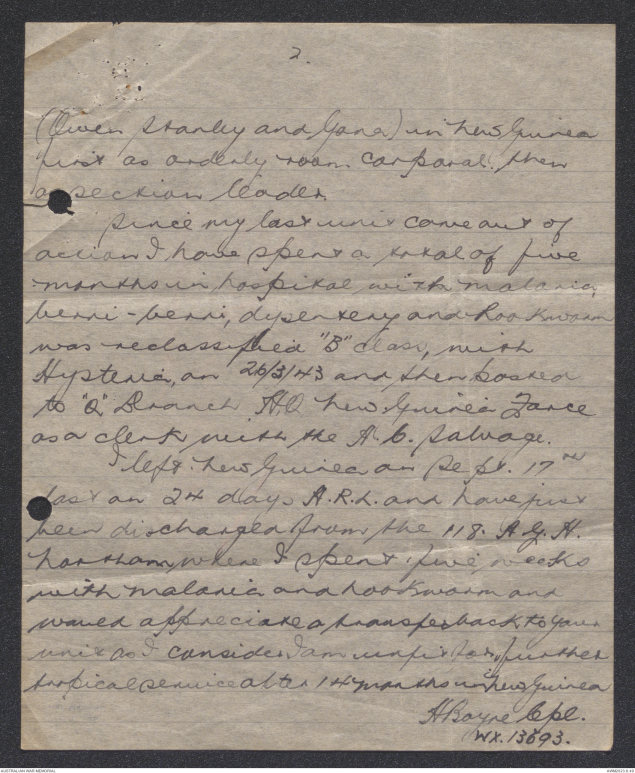 2.
(Owen Stanley and Gona) in New Guinea
first as orderly room corporal. then
a section leader.
Since my last unit came out of
action I have spent a total of five
months in hospital with malaria,
berri-berri, dysentery and hookworm
was reclassified "B" class, with
Hysteria, on 26/3/43 and then posted
to "Q" Branch HQ New Guinea Force
as a clerk with the A. C. Salvage.
I left New Guinea on Sept. 17th
last on 24 days A.R.L. and have just
been discharged from the 118. A.G.H.
Northam, where I spent five weeks
with malaria and hookworm and
would appreciate a transfer back to your
unit as I consider I am unfit for further
tropical service after 14 months in New Guinea
H Bayne Cpl.
WX. 13693.
AUSTRALIAN WAR MEMORIAL